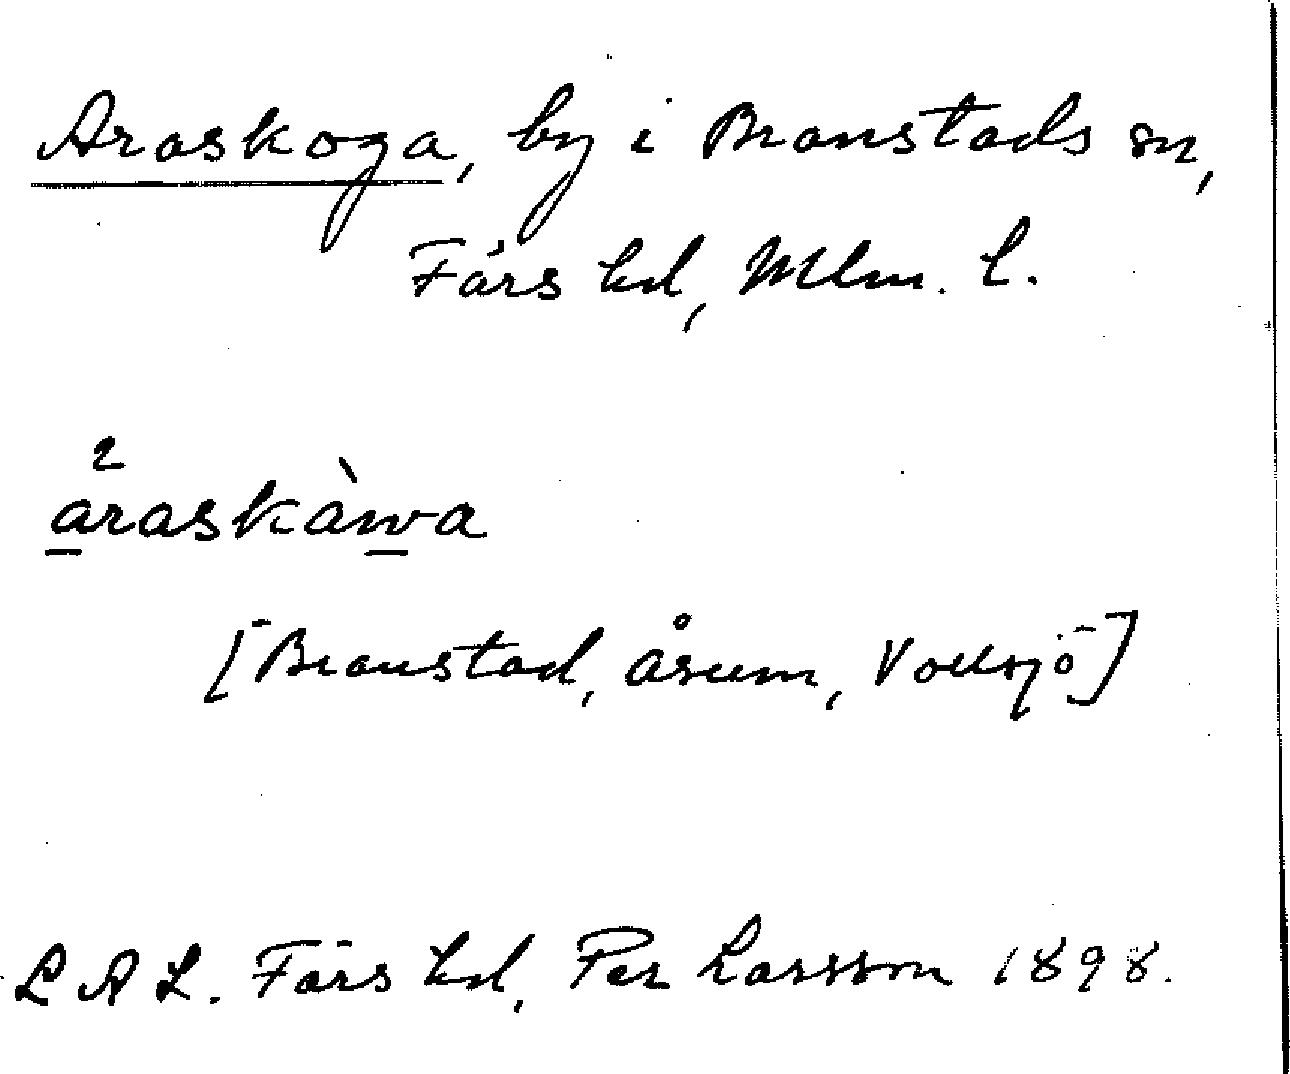 Araskoga, by i Branstads sn,
Färs hd, Mlm. l.
2
araskàwa
[Branstad, Åsum, Vollsjö]
L A L. Färs hd, Per Larsson 1898.